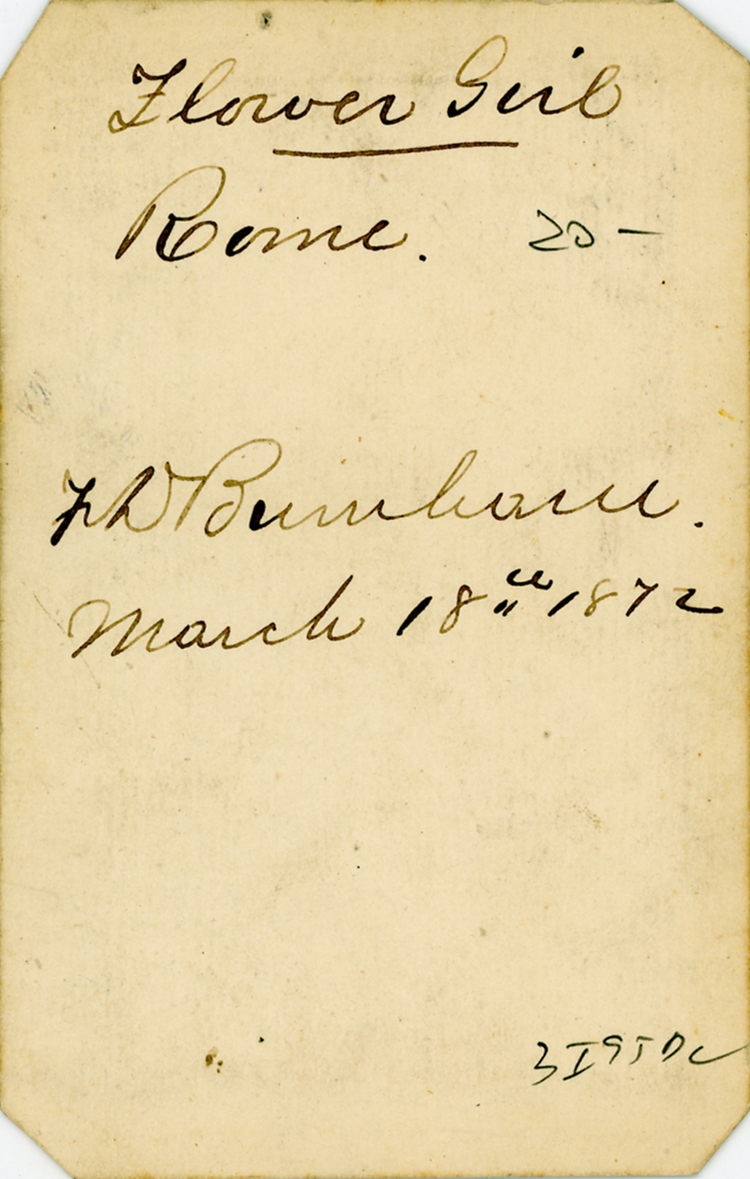 Flower Girl
Rome. 20 -
Burnham.
March 18th 1872